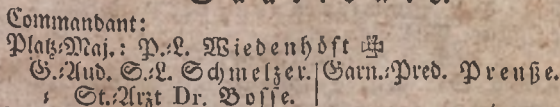 Commandant:
Platz-Maj.: P.-L. Wiedenhöft
G.-Aud. S.-L. Schmelzer. Garn.-Pred. Preuße.
St.-Arzt Dr. Bosse.